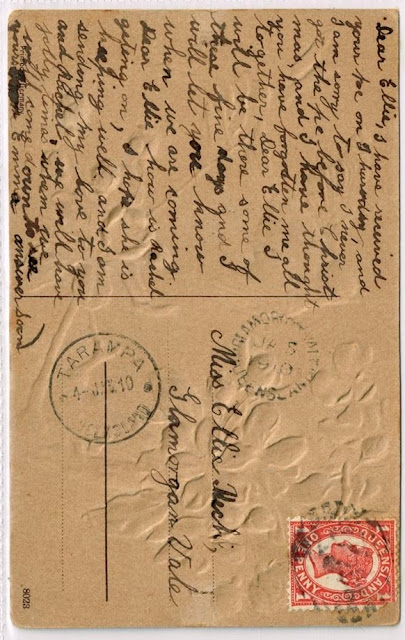 Dear Ellie, I have received
your pc on Thursday, and
I am sorry to say I never
got the pc before Christ
mas, and I have thought
you have forgotten me all
together, Dear Ellie I
will be there some of
these fine days and I
will let you know
when we are coming.
Dear Ellie how is Rachel
getting on, I hope she is
keeping well, and I am
sending my love to you
and Rachel we will have
jolly time when we
will come down to see
you from Emma
answer soon)
Miss Ellie
Glamorgan Vale
TARAMPA
4-JA.10
QUEENSLAND
QUEENSLAND
QUEENSLAND
ONE PENNY
8023